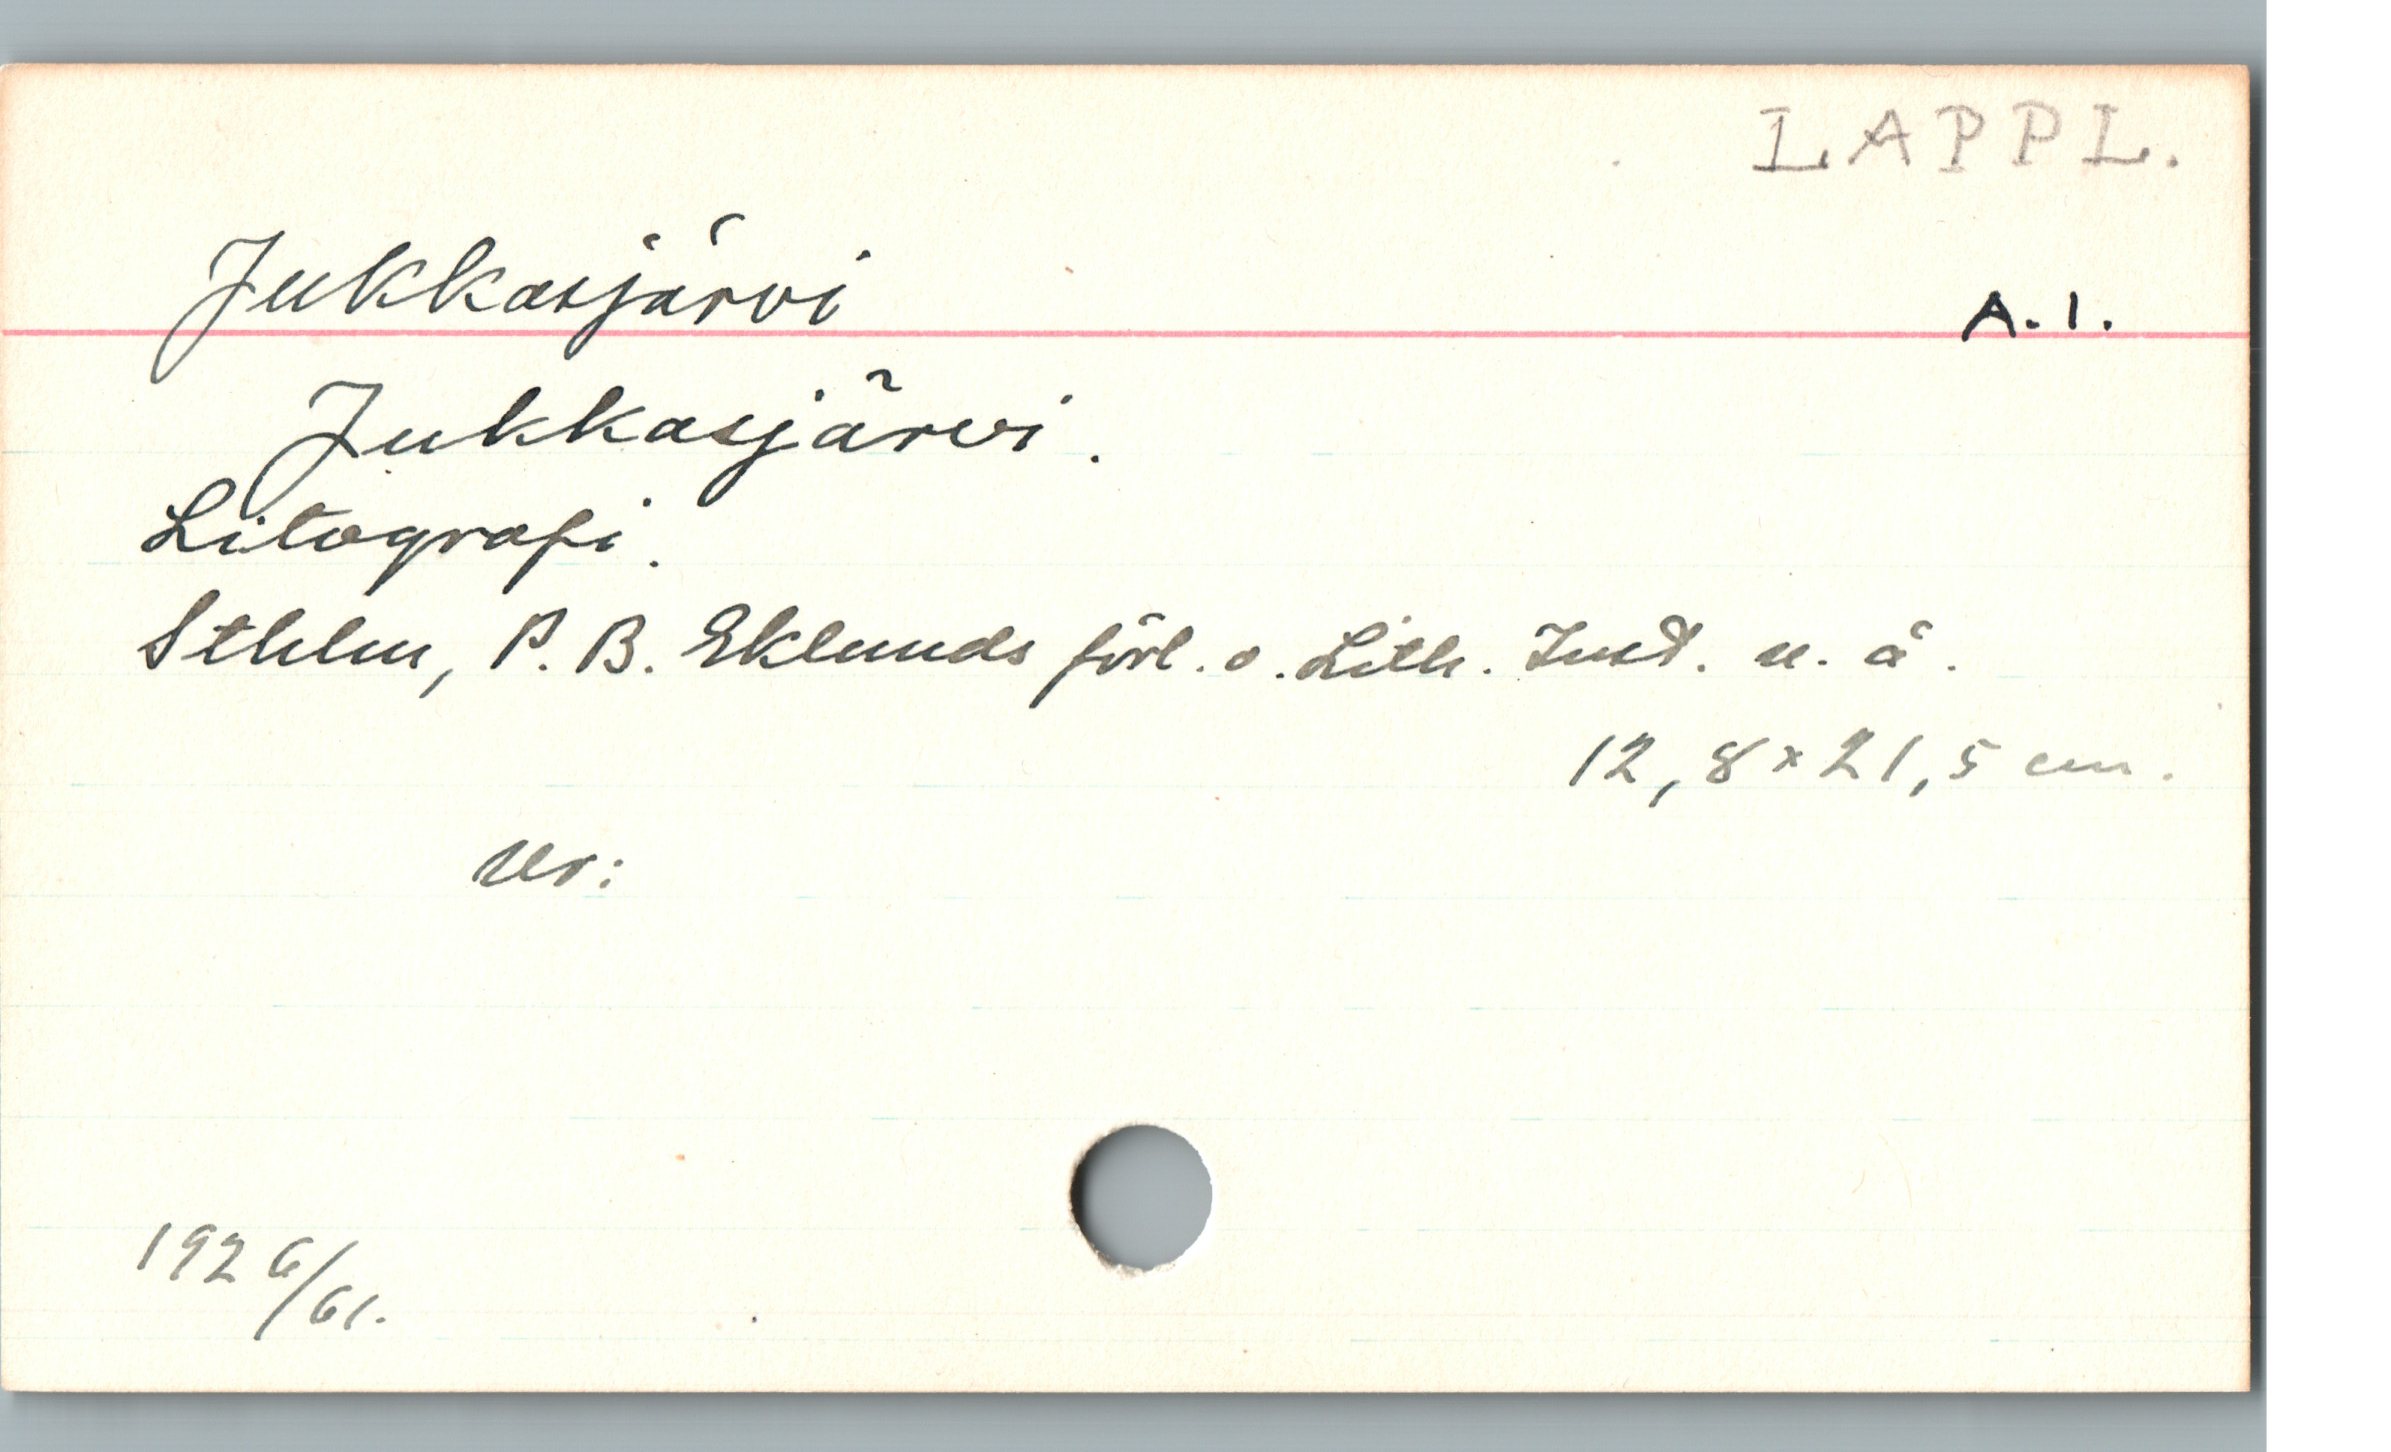 LAPPL.
Jukkasjärvi
A.1.
Jukkasjärvi.
Litografi.
Sthlm, P. B. Eklunds förl. o. Lith. Inst. u. å.
12,8 x 21,5 cm.
Ur:
1926/61.